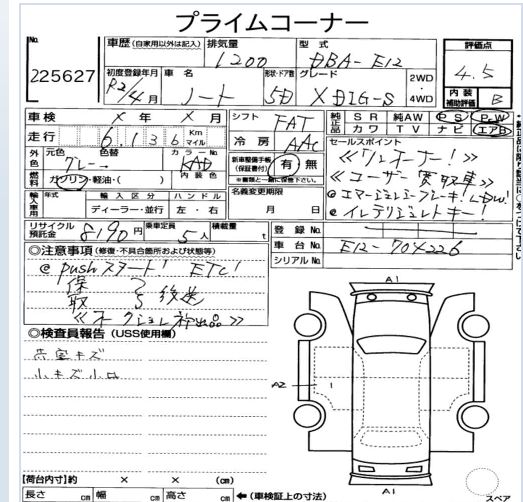 プライムコーナー
No.
225627
車歴 (自家用以外は記入) 排気量 型式 評価点
1200 DBA-E12 4.5
初度登録年月 車名 形状・ドア数 グレード 2WD 4WD 内装補助評価
R2/4月 ノート 5D X DIG-S B
車検 X年X月 シフト FAT 純正品 SR 純AW PS PW
カワ TV ナビ エアB
走行 6,136 Km マイル 冷房 AAC セールスポイント
外色 元色 色替 カラーNo. 新車整備手帳(保証書付) 有 無
グレー→ KAD
≪ワンオーナー!≫
≪ユーザー買取車≫
燃料 ガソリン・軽油・( ) 内装色
輸入車用 年式 輸入区分 ハンドル 名義変更期限
ディーラー・並行 左・右 月 日
@エマージェンシーブレーキ!LDW!
@インテリジェントキー!
リサイクル預託金 8190円 乗車定員 5人 積載量 t 登録No.
車台No. E12-704226
シリアルNo.
◎注意事項 (修復・不具合箇所および状態等)
@pushスタート! ETC!
保
取 後送
≪オークション初出品≫
◎検査員報告 (USS使用欄)
荷室キズ
小キズ小凹
A1
A2
1
A1
【荷台内寸】約 × × (cm)
長さ cm 幅 cm 高さ cm ←(車検証上の寸法)
スペア